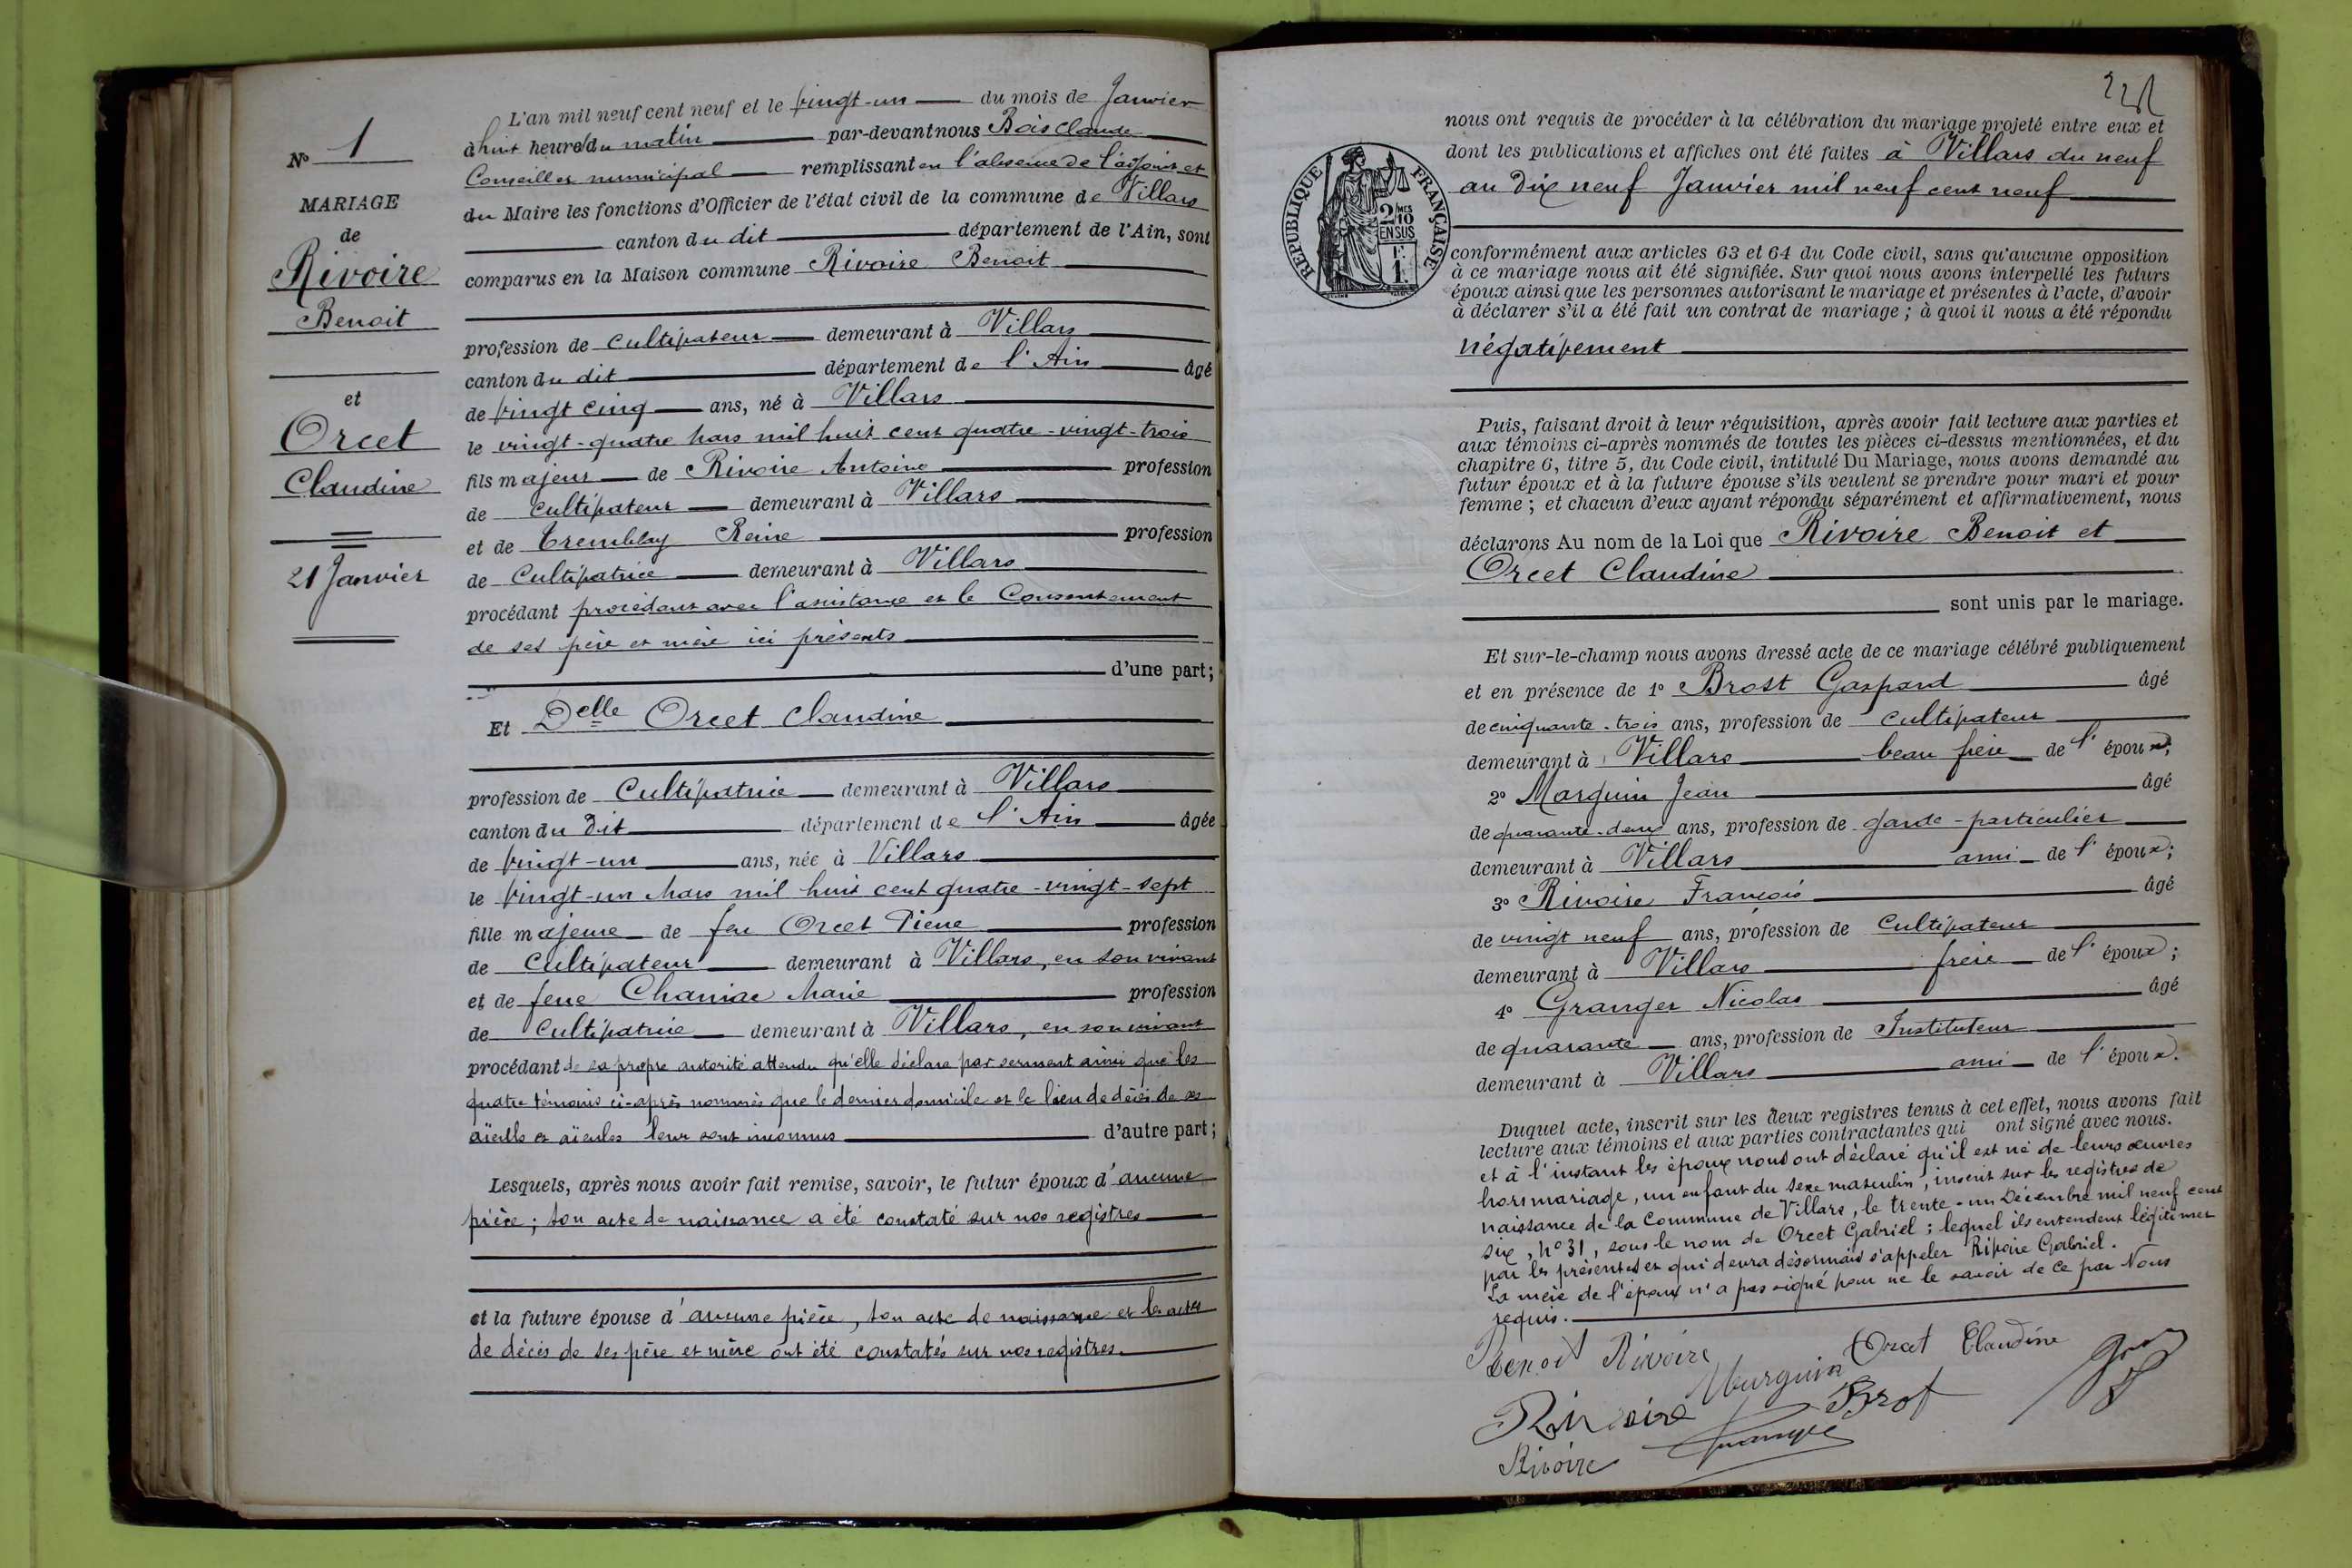 N° 1
MARIAGE
de
Rivoire
Benoit
et
Orcet
Claudine
21 Janvier
L'an mil neuf cent neuf et le vingt-un du mois de Janvier
à huit heures du matin par-devant nous Bois Claude
Conseiller municipal remplissant en l'absence de l'adjoint et
du Maire les fonctions d'Officier de l'état civil de la commune de Villars
canton du dit département de l'Ain, sont
comparus en la Maison commune Rivoire Benoit
profession de cultivateur demeurant à Villars
canton du dit département de l'Ain âgé
de vingt cinq ans, né à Villars
le vingt-quatre Mars mil huit cent quatre-vingt-trois
fils majeur de Rivoire Antoine profession
de cultivateur demeurant à Villars
et de Tremblay Reine profession
de Cultivatrice demeurant à Villars
procédant procédant avec l'assistance et le Consentement
de ses père et mère ici présents
d'une part;
Et Delle Orcet Claudine
profession de Cultivatrice demeurant à Villars
canton du dit département de l'Ain âgée
de vingt-un ans, née à Villars
le vingt-un Mars mil huit cent quatre-vingt-sept
fille majeure de feu Orcet Pierre profession
de Cultivateur demeurant à Villars, en son vivant
et de feue Marie profession
de Cultivatrice demeurant à Villars, en son vivant
procédant de sa propre autorité attendu qu'elle déclare par serment ainsi que les
quatre témoins ci-après nommés que le dernier domicile et le lieu de décès de ses
aïeuls et aïeules leur sont inconnus d'autre part;
Lesquels, après nous avoir fait remise, savoir, le futur époux d'aucune
pièce; son acte de naissance a été constaté sur nos registres
et la future épouse d'aucune pièce, son acte de naissance et les actes
de décès de ses père et mère ont été constatés sur nos registres.
nous ont requis de procéder à la célébration du mariage projeté entre eux et
dont les publications et affiches ont été faites à Villars du neuf
au dix neuf Janvier mil neuf cent neuf
RÉPUBLIQUE FRANÇAISE
2/10 MES
EN SUS
F.
1
conformément aux articles 63 et 64 du Code civil, sans qu'aucune opposition
à ce mariage nous ait été signifiée. Sur quoi nous avons interpellé les futurs
époux ainsi que les personnes autorisant le mariage et présentes à l'acte, d'avoir
à déclarer s'il a été fait un contrat de mariage; à quoi il nous a été répondu
négativement
Puis, faisant droit à leur réquisition, après avoir fait lecture aux parties et
aux témoins ci-après nommés de toutes les pièces ci-dessus mentionnées, et du
chapitre 6, titre 5, du Code civil, intitulé Du Mariage, nous avons demandé au
futur époux et à la future épouse s'ils veulent se prendre pour mari et pour
femme; et chacun d'eux ayant répondu séparément et affirmativement, nous
déclarons Au nom de la Loi que Rivoire Benoit et
Orcet Claudine
sont unis par le mariage.
Et sur-le-champ nous avons dressé acte de ce mariage célébré publiquement
et en présence de 1° Brost Gaspard âgé
de cinquante-trois ans, profession de cultivateur
demeurant à Villars beau frère de l'époux;
2° Marguin Jean âgé
de quarante-deux ans, profession de garde-particulier
demeurant à Villars ami de l'époux;
3° Rivoire François âgé
de vingt neuf ans, profession de Cultivateur
demeurant à Villars frère de l'époux;
4° Granger Nicolas âgé
de quarante ans, profession de Instituteur
demeurant à Villars ami de l'époux.
Duquel acte, inscrit sur les deux registres tenus à cet effet, nous avons fait
lecture aux témoins et aux parties contractantes qui ont signé avec nous.
et à l'instant les époux nous ont déclaré qu'il est né de leurs œuvres
hors mariage, un enfant du sexe masculin, inscrit sur les registres de
naissance de la Commune de Villars, le trente-un Décembre mil neuf cent
six, N° 31, sous le nom de Orcet Gabriel; lequel ils entendent légitimer
par les présentes et qui devra désormais s'appeler Rivoire Gabriel.
La mère de l'époux n'a pas signé pour ne le savoir de ce par Nous
requis.
Benoit Rivoire Orcet Claudine
Marguin
Rivoire Brost
Granger
Rivoire